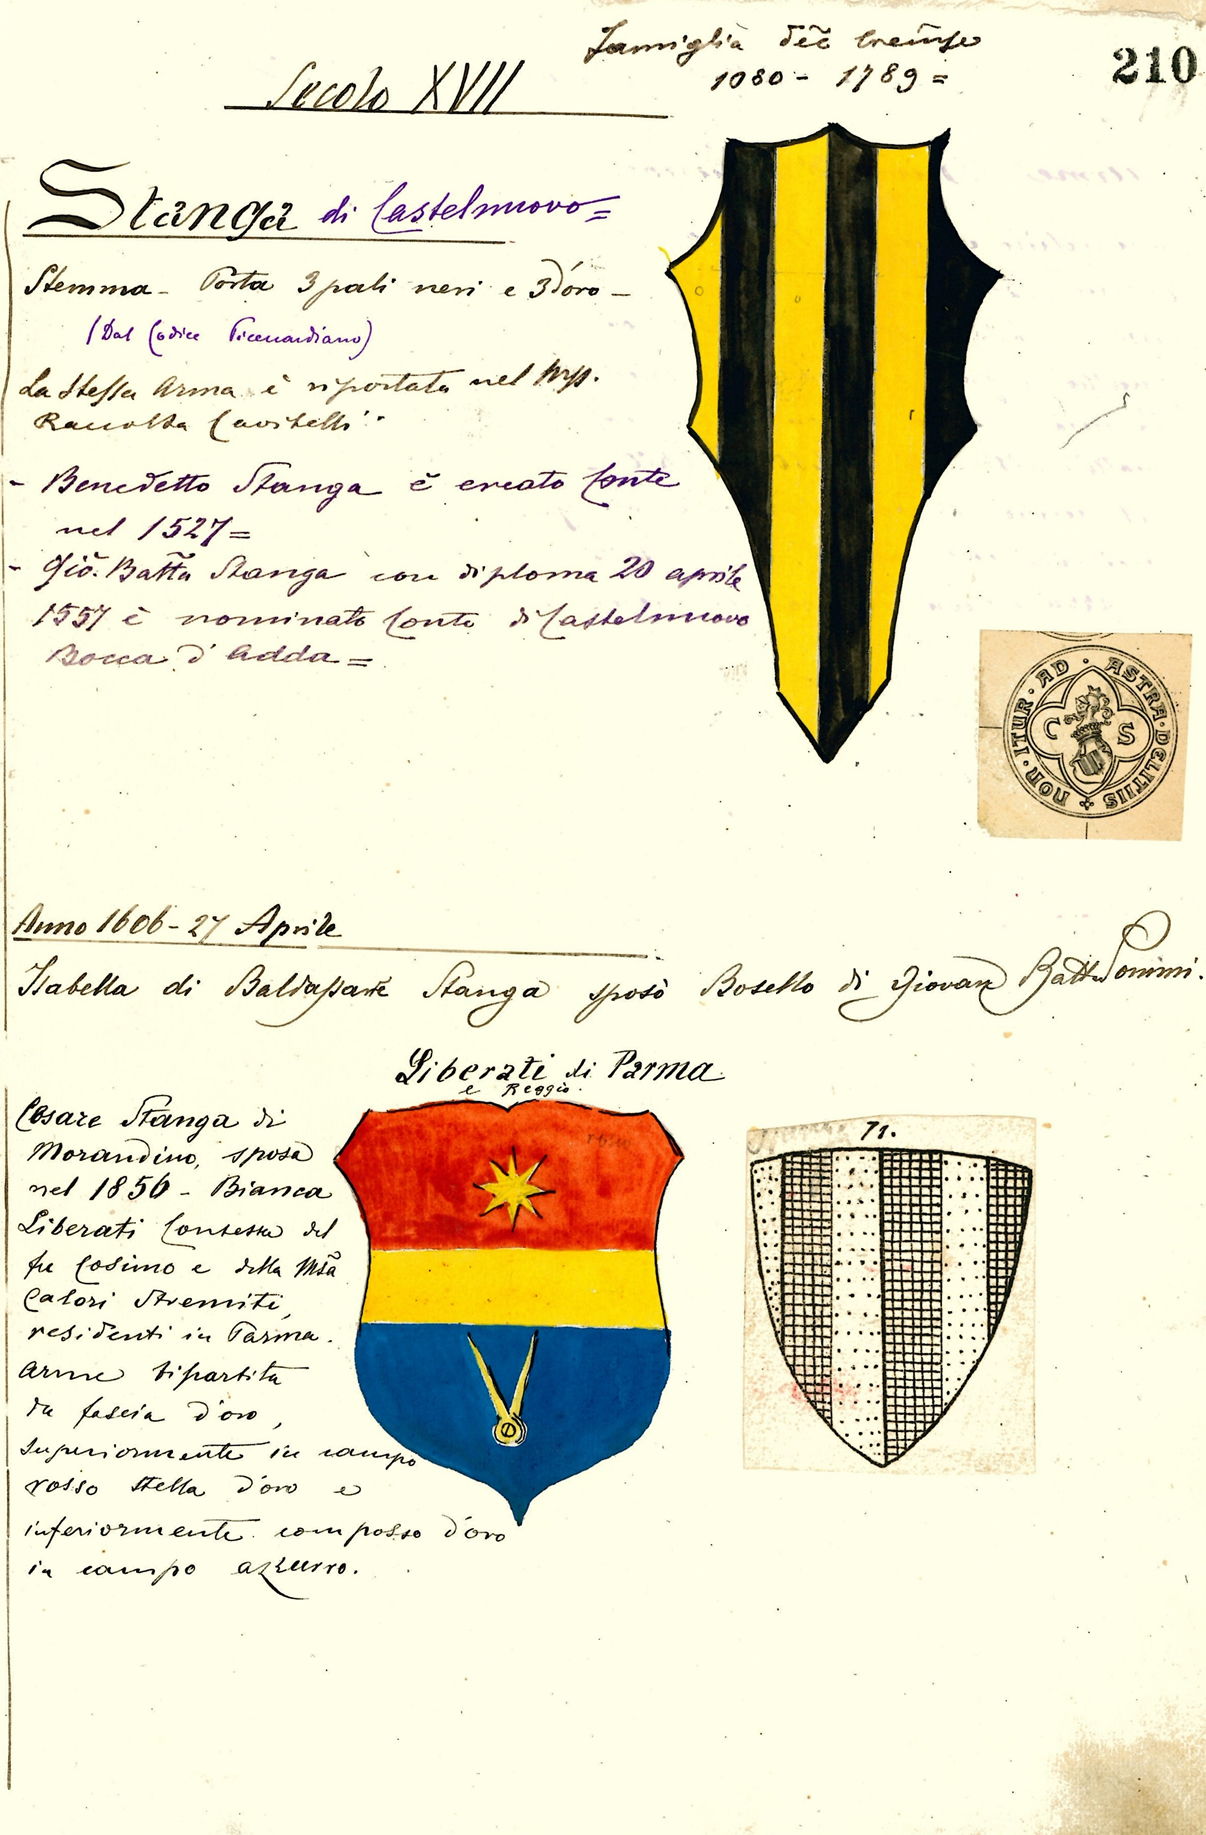 Famiglia del Cremse
1080 - 1789 =
210
Secolo XVII
Stanga di Castelnuovo =
Stemma - Porta 3 pali neri e 3 d'oro -
(Dal Codice Picenardiano)
La Stessa Arma è riportata nel Mss.
Raccolta Cavitelli
- Benedetto Stanga è creato Conte
nel 1527 =
- Giõ. Batta Stanga con diploma 20 aprile
1557 è nominato Conte di Castelnuovo
Bocca d'Adda =
NON · ITUR · AD · ASTRA · DELITIIS
C S
Anno 1606 - 27 Aprile
Isabella di Baldassare Stanga sposò Bosello di Giovan Batt. Sommi.
Liberati di Parma
e Reggio.
Cesare Stanga di
Morandino, sposa
nel 1856 - Bianca
Liberati Contessa del
fu Cosimo e della Msa
Calori Stremiti,
residenti in Parma.
Arme bipartita
da fascia d'oro,
superiormente in campo
rosso stella d'oro e
inferiormente compasso d'oro
in campo azzurro.
71.